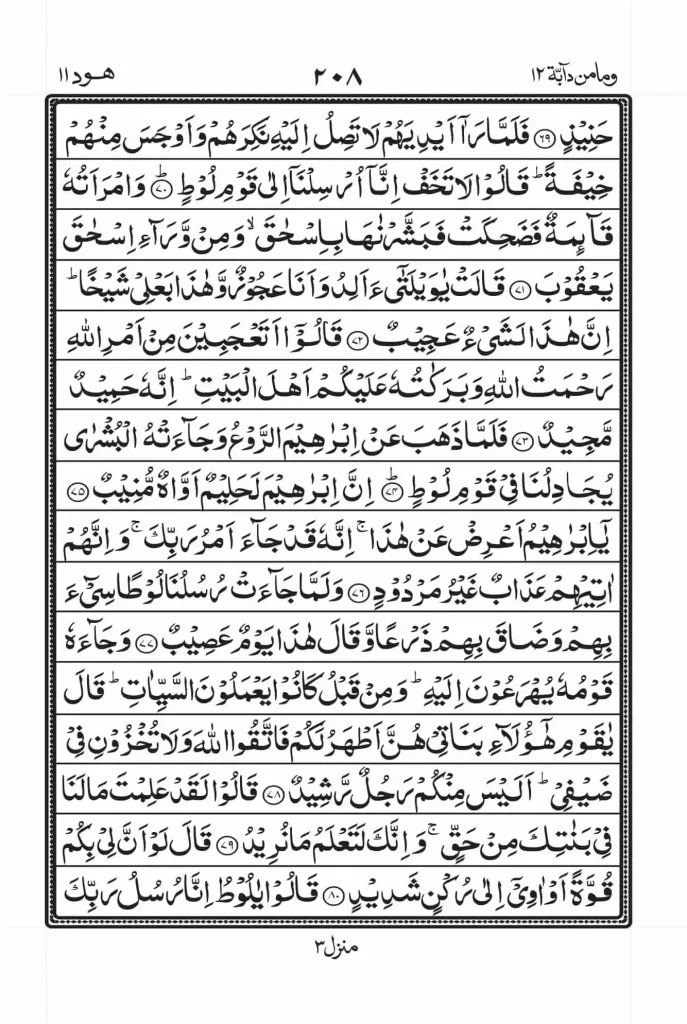 وما من دآبّة ١٢
٢٠٨
هود ١١
حَنِيْذٍ ﴿٦٩﴾ فَلَمَّا رَاٰۤ اَيْدِيَهُمْ لَا تَصِلُ اِلَيْهِ نَكِرَهُمْ وَاَوْجَسَ مِنْهُمْ
خِيْفَةً ؕ قَالُوْا لَا تَخَفْ اِنَّاۤ اُرْسِلْنَاۤ اِلٰى قَوْمِ لُوْطٍ ؕ﴿٧٠﴾ وَامْرَاَتُهٗ
قَآىِٕمَةٌ فَضَحِكَتْ فَبَشَّرْنٰهَا بِاِسْحٰقَ ۙ وَمِنْ وَّرَآءِ اِسْحٰقَ
يَعْقُوْبَ ﴿٧١﴾ قَالَتْ يٰوَيْلَتٰٓى ءَاَلِدُ وَاَنَا عَجُوْزٌ وَّهٰذَا بَعْلِيْ شَيْخًا ؕ
اِنَّ هٰذَا لَشَيْءٌ عَجِيْبٌ ﴿٧٢﴾ قَالُوْۤا اَتَعْجَبِيْنَ مِنْ اَمْرِ اللّٰهِ
رَحْمَتُ اللّٰهِ وَبَرَكٰتُهٗ عَلَيْكُمْ اَهْلَ الْبَيْتِ ؕ اِنَّهٗ حَمِيْدٌ
مَّجِيْدٌ ﴿٧٣﴾ فَلَمَّا ذَهَبَ عَنْ اِبْرٰهِيْمَ الرَّوْعُ وَجَآءَتْهُ الْبُشْرٰى
يُجَادِلُنَا فِيْ قَوْمِ لُوْطٍ ؕ﴿٧٤﴾ اِنَّ اِبْرٰهِيْمَ لَحَلِيْمٌ اَوَّاهٌ مُّنِيْبٌ ﴿٧٥﴾
يٰۤاِبْرٰهِيْمُ اَعْرِضْ عَنْ هٰذَا ۚ اِنَّهٗ قَدْ جَآءَ اَمْرُ رَبِّكَ ۚ وَاِنَّهُمْ
اٰتِيْهِمْ عَذَابٌ غَيْرُ مَرْدُوْدٍ ﴿٧٦﴾ وَلَمَّا جَآءَتْ رُسُلُنَا لُوْطًا سِيْٓءَ
بِهِمْ وَضَاقَ بِهِمْ ذَرْعًا وَّقَالَ هٰذَا يَوْمٌ عَصِيْبٌ ﴿٧٧﴾ وَجَآءَهٗ
قَوْمُهٗ يُهْرَعُوْنَ اِلَيْهِ ؕ وَمِنْ قَبْلُ كَانُوْا يَعْمَلُوْنَ السَّيِّاٰتِ ؕ قَالَ
يٰقَوْمِ هٰۤؤُلَآءِ بَنَاتِيْ هُنَّ اَطْهَرُ لَكُمْ فَاتَّقُوا اللّٰهَ وَلَا تُخْزُوْنِ فِيْ
ضَيْفِيْ ؕ اَلَيْسَ مِنْكُمْ رَجُلٌ رَّشِيْدٌ ﴿٧٨﴾ قَالُوْا لَقَدْ عَلِمْتَ مَا لَنَا
فِيْ بَنٰتِكَ مِنْ حَقٍّ ۚ وَاِنَّكَ لَتَعْلَمُ مَا نُرِيْدُ ﴿٧٩﴾ قَالَ لَوْ اَنَّ لِيْ بِكُمْ
قُوَّةً اَوْ اٰوِيْۤ اِلٰى رُكْنٍ شَدِيْدٍ ﴿٨٠﴾ قَالُوْا يٰلُوْطُ اِنَّا رُسُلُ رَبِّكَ
منزل ٣